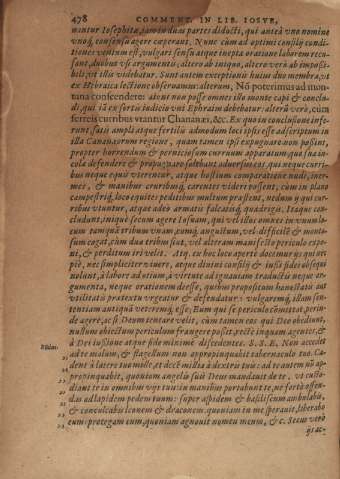 478 COMMENT. IN LIB. IOSVE,
mintur Iosephitæ, partim dum partes ducti, qui anteà vno nomine
vnoq; consensu agere cœperant. Nunc cùm ad optimi consilij condi-
tiones ventum est, vulgari sensu atque inepta oratione laborem recu-
sant, duobus vsi argumentis: altero ab iniquo, altero verò ab impossi-
bili, vt illis videbatur. Sunt autem exceptionis huius duo membra, vt
ex Hebraica lectione obseruamus: alterum, Nō poterimus ad mon-
tana conscendere: aiunt non posse omnes illo monte capi & conclu-
di, qui iā ex sortis iudicio vni Ephraim debebatur: alterū verò, cùm
ferreis curribus vtantur Chananæi, &c. Ex quo in conclusione infe-
runt, satis
illa Cananæorum regione, quam tamen ipsi expugnare non possint,
propter horrendum & perniciosum curruum apparatum quo in-
colæ defendere & propugnare solebant aduersus eos, qui neque curri-
bus neque equis vterentur, atque hostium comparatione nudi, iner-
mes, & manibus cruribusq; carentes videri possent, cùm in plano
campestriq; loco equites peditibus multum præstent, nedum ij qui cur-
ribus vtuntur, atque adeò armatis falcatisq; quadrigis. Itaque con-
cludunt, iniquè secum agere Iosuam, qui vel illos omnes in vnum lo-
cum tamquā tribum vnam, eumq; angustum, vel difficilē & monto-
sum cogat, cùm duæ tribus sint, vel alteram manifesto periculo expo-
ne, & perditum iri velit. Atq; ex hoc loco apertè docemur ijs qui nec
piè, nec simpliciter viuere, atque diuinis consilijs & iussis fidos obsequi
nolunt, à labore ad otium, à virtute ad ignauiam traductis neque ar-
gumenta, neque orationem deesse, quibus propositum honestatis aut
vtilitatis prætextu vrgeatur & defendatur: vulgaremq; illam sen-
tentiam antiquā veteremq; esse; Eum qui se periculo committat, perin-
de agere, ac si Deum tentare velit, cùm tamen eos qui Deo obediunt,
nullum obiectum periculum frangere possit, rectè inquam agentes, &
à Dei iussione atque fide minimè discedentes. S. E. Non accedet
ad te malum, & flagellum non appropinquabit tabernaculo tuo. Ca-
dent à latere tuo mille, et decē millia à dextris tuis: ad te autem nō ap-
propinquabit, quoniam angelis suis Deus mandauit de te, vt custo-
diant te in omnibus vijs tuis: in manibus portabunt te, ne fortè offen-
das ad lapidem pedem tuum: super aspidem & basiliscum ambulabis,
& conculcabis leonem & draconem. quoniam in me sperauit, liberabo
eum: protegam eum, quoniam agnouit nomen meum, & c. Secus verò